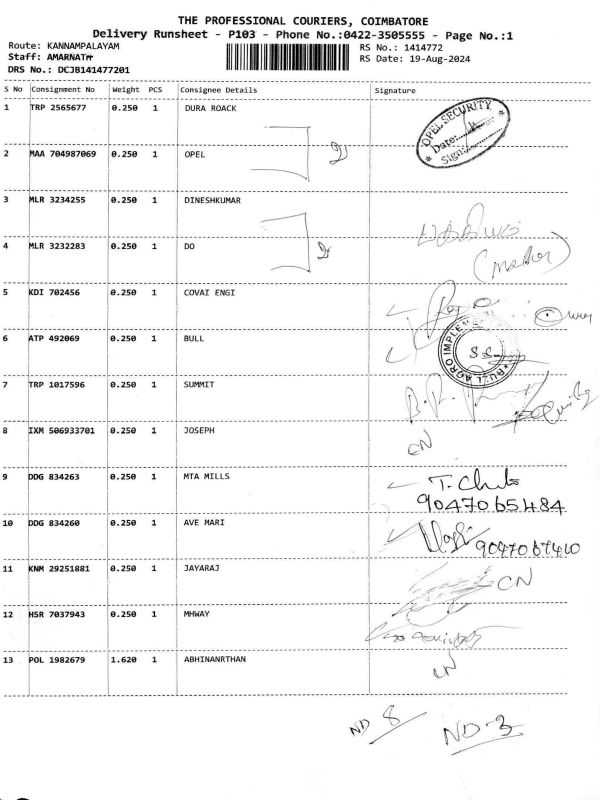 THE PROFESSIONAL COURIERS, COIMBATORE
Delivery Runsheet - P103 - Phone No.:0422-3505555 - Page No.:1
Route: KANNAMPALAYAM RS No.: 1414772
Staff: AMARNATH RS Date: 19-Aug-2024
DRS No.: DCJB141477201
S No Consignment No Weight PCS Consignee Details Signature
1 TRP 2565677 0.250 1 DURA ROACK
OPEL SECURITY
Date:
Sign:
2 MAA 704987069 0.250 1 OPEL
3 MLR 3234255 0.250 1 DINESHKUMAR
4 MLR 3232283 0.250 1 DO
(mother)
5 KDI 702456 0.250 1 COVAI ENGI
6 ATP 492069 0.250 1 BULL
BULL AGRO IMPLEMENTS
7 TRP 1017596 0.250 1 SUMMIT
8 IXM 506933701 0.250 1 JOSEPH
CN
9 DDG 834263 0.250 1 MTA MILLS
9047065484
10 DDG 834260 0.250 1 AVE MARI
9047067410
11 KNM 29251881 0.250 1 JAYARAJ CN
12 HSR 7037943 0.250 1 MHWAY
13 POL 1982679 1.620 1 ABHINANRTHAN
ND 8
ND-3